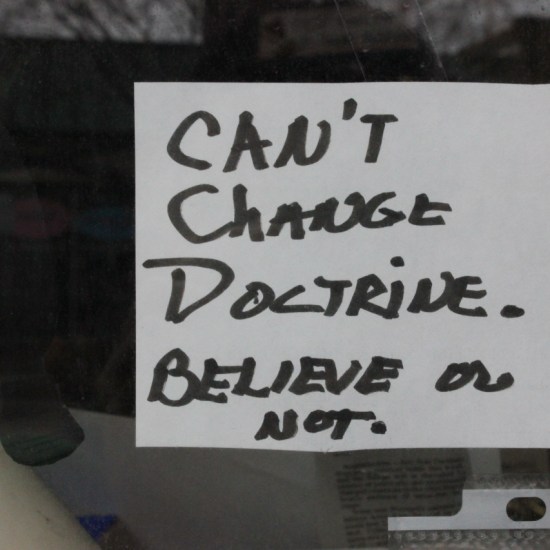 CAN'T
CHANGE
DOCTRINE.
BELIEVE OR
NOT.